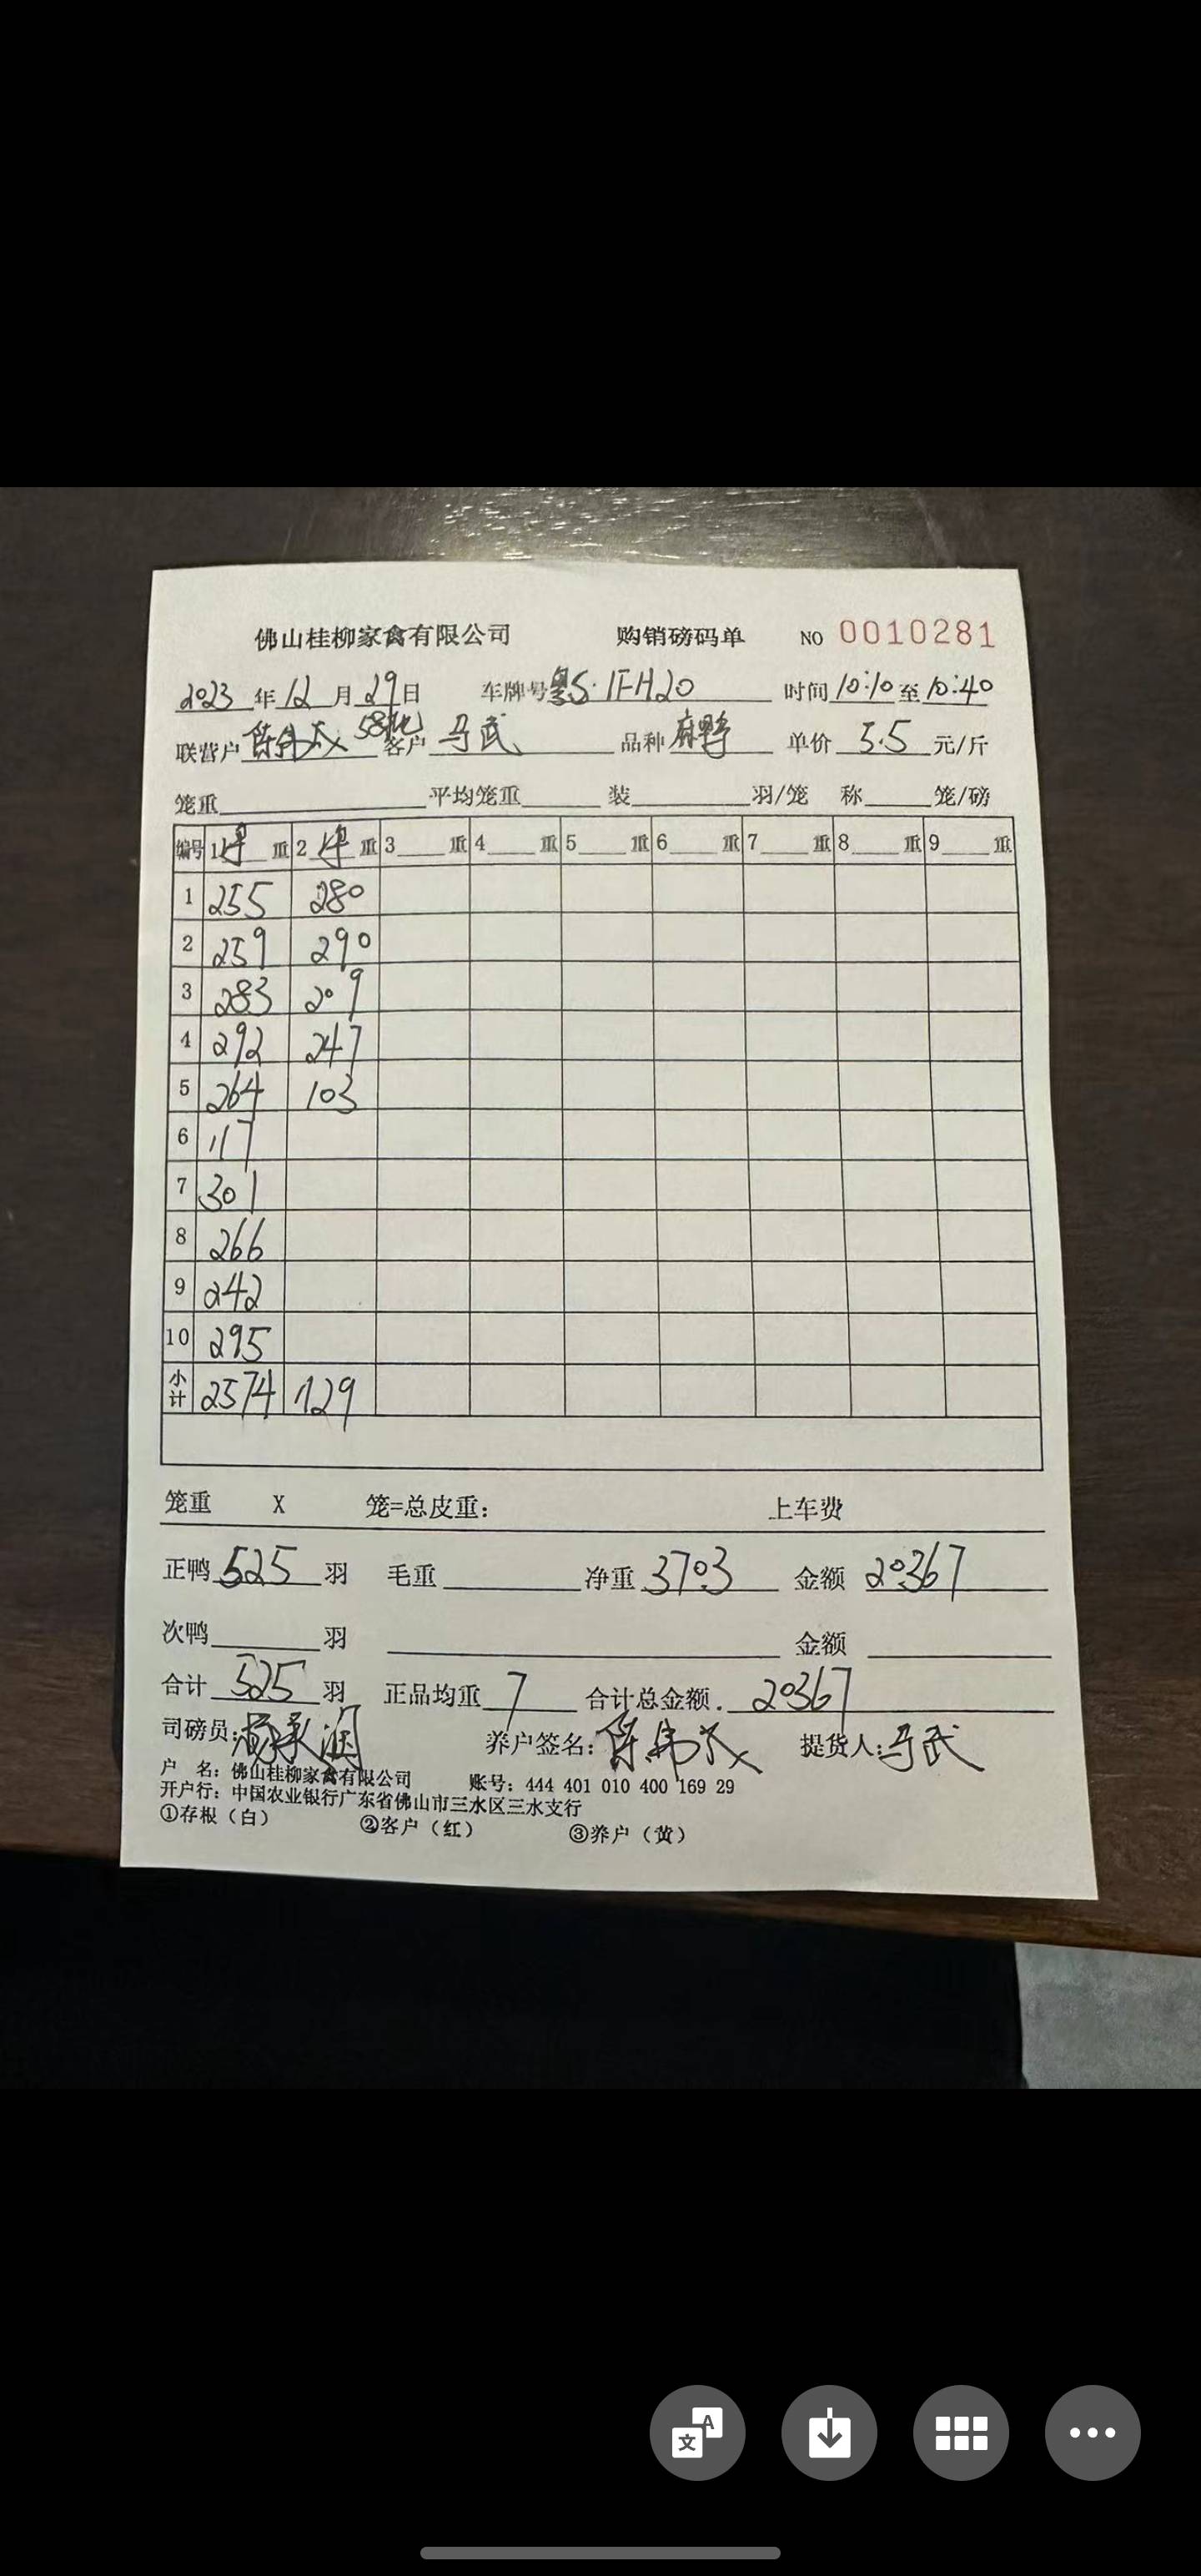 佛山桂柳家禽有限公司 购销磅码单 NO 0010281
2023年12月29日 车牌号粤S·1FH20 时间10:10至10:40
联营户 58批 客户 马武 品种 麻鸭 单价 5.5 元/斤
笼重 平均笼重 装 羽/笼 称 笼/磅
编号 1净重 2净重 3 重 4 重 5 重 6 重 7 重 8 重 9 重
1 255 280
2 259 290
3 283 209
4 292 247
5 264 103
6 117
7 301
8 266
9 242
10 295
小计 2574 1129
笼重 X 笼=总皮重: 上车费
正鸭 525 羽 毛重 净重 3703 金额 20367
次鸭 羽 金额
合计 525 羽 正品均重 7 合计总金额. 20367
司磅员: 养户签名: 提货人:马武
户 名: 佛山桂柳家禽有限公司 账号: 444 401 010 400 169 29
开户行: 中国农业银行广东省佛山市三水区三水支行
①存根（白） ②客户（红） ③养户（黄）